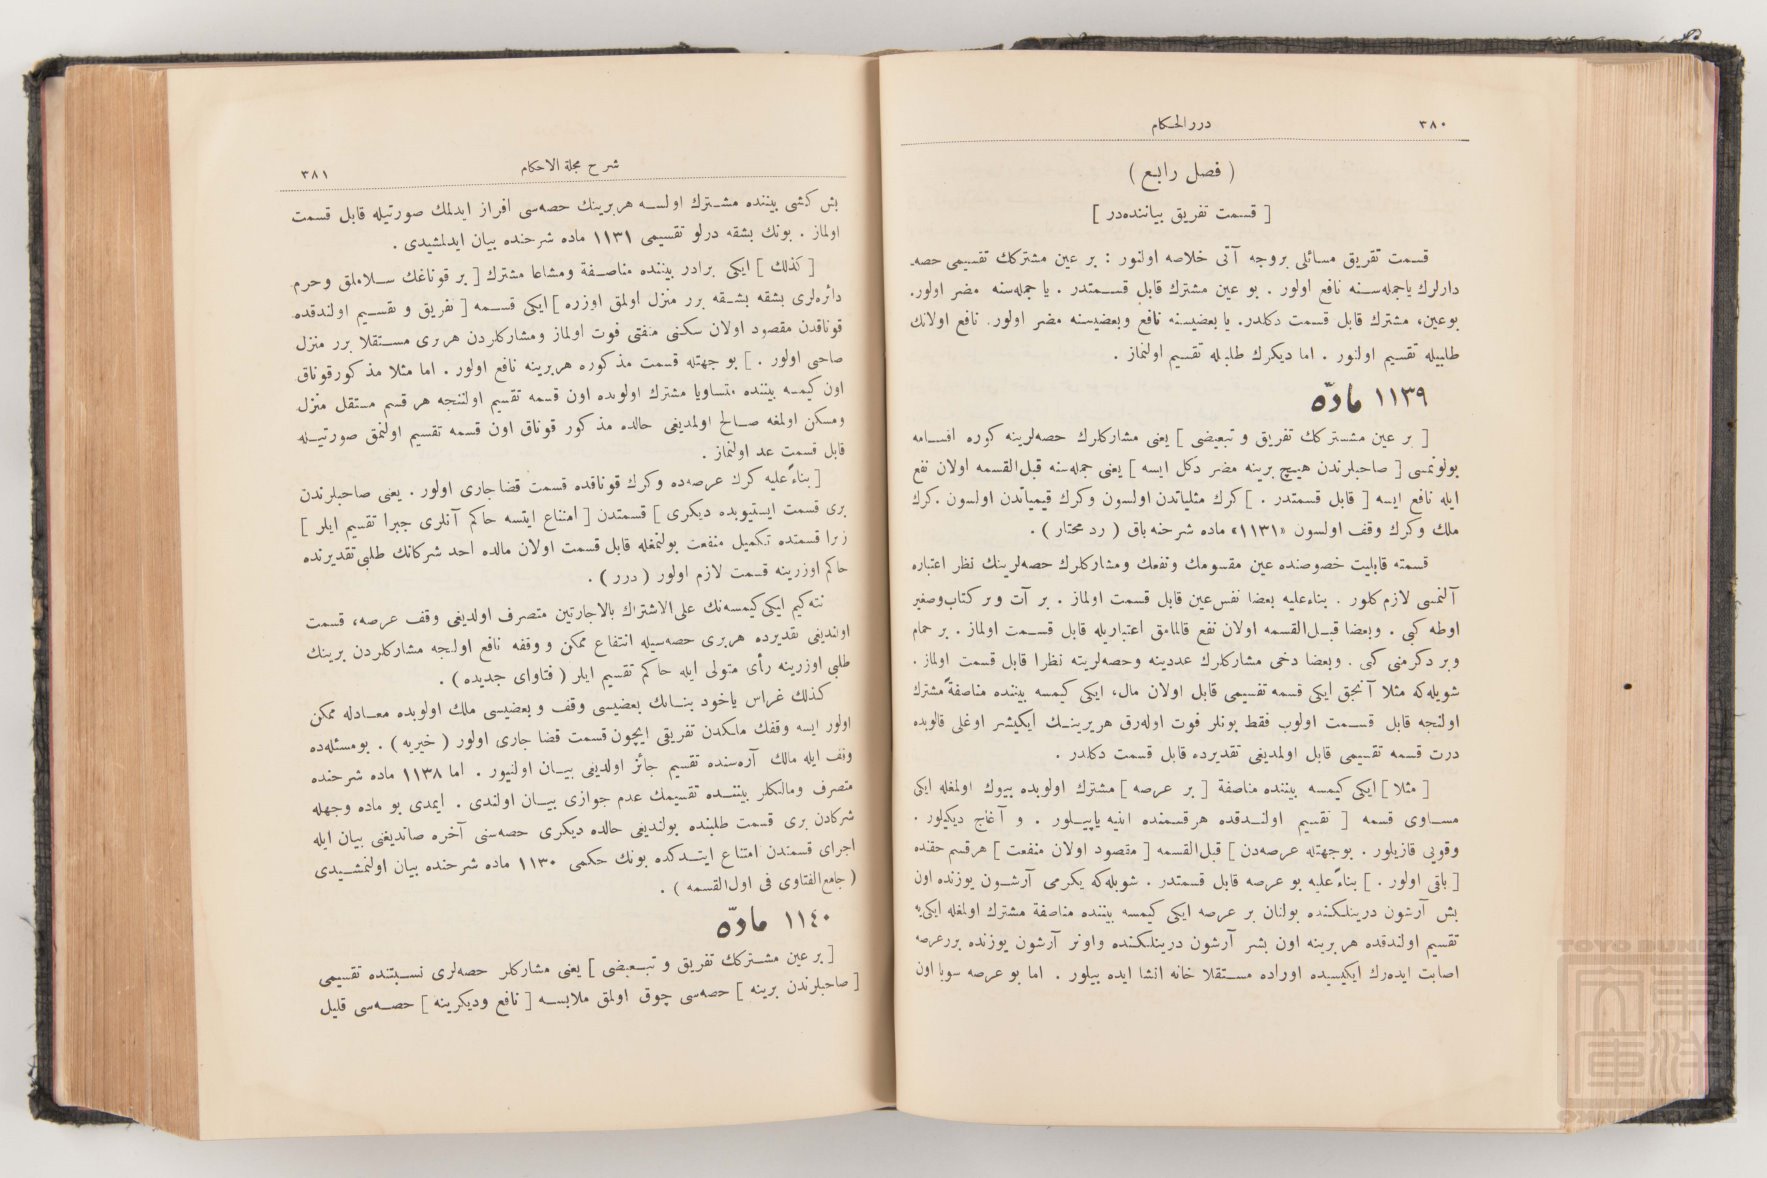 ٣٨٠
درر الحكام
( فصل رابع )
[ قسمت تفريق بياننده‌در ]
قسمت تفريق مسائلى بروجه آتى خلاصه اولنور : بر عين مشتركك تقسيمى حصه‌
دارلرك ياجمله‌سنه نافع اولور . بو عين مشترك قابل قسمتدر . يا جمله‌سنه مضر اولور.
بوعين، مشترك قابل قسمت دكلدر. يا بعضيسنه نافع وبعضيسنه مضر اولور. نافع اولانك
طلبيله تقسيم اولنور . اما ديكرك طلبله تقسيم اولنماز .
١١٣٩ مادّه
[ بر عين مشتركك تفريق و تبعيضى ] يعنى مشاركلرك حصه‌لرينه كوره اقسامه
بولونمسى [ صاحبلرندن هيچ برينه مضر دكل ايسه ] يعنى جمله‌سنه قبل‌القسمه اولان نفع
ايله نافع ايسه [ قابل قسمتدر . ] كرك مثلياتدن اولسون وكرك قيمياتدن اولسون .كرك
ملك وكرك وقف اولسون «١١٣١» ماده شرحنه باق ( رد محتار ) .
قسمته قابليت خصوصنده عين مقسومك ونفعك ومشاركلرك حصه‌لرينك نظر اعتباره
آلنمسى لازم كلور . بناءعليه بعضا نفس عين قابل قسمت اولماز . بر آت وبر كتاب‌وصغير
اوطه كبى . وبعضا قبل‌القسمه اولان نفع قالمامق اعتباريله قابل قسمت اولماز . بر حمام
وبر دكرمنى كبى . وبعضا دخى مشاركلرك عددينه وحصه‌لرينه نظرا قابل قسمت اولماز .
شويله‌كه مثلا آنجق ايكى قسمه تقسيمى قابل اولان مال، ايكى كيمسه بيننده مناصفةً مشترك
اولنجه قابل قسمت اولوب فقط بونلر فوت اوله‌رق هربرينك ايكيشر اوغلى قالوبده
درت قسمه تقسيمى قابل اولمديغى تقديرده قابل قسمت دكلدر .
[ مثلا ] ايكى كيمسه بيننده مناصفة [ بر عرصه ] مشترك اولوبده بيوك اولمغله ايكى
مساوى قسمه [ تقسيم اولندقده هرقسمنده ابنيه ياپيلور . و آغاج ديكيلور .
وقويى قازيلور . بوجهتله عرصه‌دن ] قبل‌القسمه [ مقصود اولان منفعت ] هرقسم حقنده
[ باقى اولور . ] بناءًعليه بو عرصه قابل قسمتدر . شويله‌كه يكرمى آرشون يوزنده اون
بش آرشون درينلكنده بولنان بر عرصه ايكى كيمسه بيننده مناصفة مشترك اولمغله ايكى‌يه
تقسيم اولندقده هر برينه اون بشر آرشون درينلكنده واونر آرشون يوزنده بررعرصه
اصابت ايده‌رك ايكيسيده اوراده مستقلا خانه انشا ايده بيلور . اما بو عرصه سوبا اون
شرح مجلة الاحكام
٣٨١
بش كشى بيننده مشترك اولسه هربرينك حصه‌سى افراز ايدلمك صورتيله قابل قسمت
اولماز . بونك بشقه درلو تقسيمى ١١٣١ ماده شرحنده بيان ايدلمشيدى .
[ كذلك ] ايكى برادر بيننده مناصفة ومشاعا مشترك [ بر قوناغك سلاملق وحرم
دائره‌لرى بشقه بشقه برر منزل اولمق اوزره ] ايكى قسمه [ تفريق و تقسيم اولندقده
قوناقدن مقصود اولان سكنى منفعتى فوت اولماز ومشاركلردن هربرى مستقلا برر منزل
صاحبى اولور . ] بو جهتله قسمت مذكوره هربرينه نافع اولور . اما مثلا مذكورقوناق
اون كيمسه بيننده متساويا مشترك اولوبده اون قسمه تقسيم اولننجه هر قسم مستقل منزل
ومسكن اولمغه صالح اولمديغى حالده مذكور قوناق اون قسمه تقسيم اولنمق صورتيله
قابل قسمت عد اولنماز .
[ بناءًعليه كرك عرصه‌ده وكرك قوناقده قسمت قضا جارى اولور . يعنى صاحبلرندن
برى قسمت ايستيوبده ديكرى ] قسمتدن [ امتناع ايتسه حاكم آنلرى جبرا تقسيم ايلر ]
زيرا قسمتده تكميل منفعت بولنمغله قابل قسمت اولان مالده احد شركانك طلبى‌تقديرنده
حاكم اوزرينه قسمت لازم اولور ( درر ) .
نته‌كيم ايكى كيمسه‌نك على‌الاشتراك بالاجارتين متصرف اولديغى وقف عرصه، قسمت
اولنديغى تقديرده هربرى حصه‌سيله انتفاع ممكن و وقفه نافع اولنجه مشاركلردن برينك
طلبى اوزرينه رأى متولى ايله حاكم تقسيم ايلر ( فتاواى جديده ) .
كذلك غراس ياخود بنانك بعضيسى وقف و بعضيسى ملك اولوبده معادله ممكن
اولور ايسه وقفك ملكدن تفريقى ايچون قسمت قضا جارى اولور ( خيريه ) . بومسئله‌ده
وقف ايله مالك آره‌سنده تقسيم جائز اولديغى بيان اولنيور . اما ١١٣٨ ماده شرحنده
متصرف ومالكلر بيننده تقسيمك عدم جوازى بيان اولندى . ايمدى بو ماده وجهله
شركادن برى قسمت طلبنده بولنديغى حالده ديكرى حصه‌سنى آخره صاتديغنى بيان ايله
اجراى قسمتدن امتناع ايتدكده بونك حكمى ١١٣٠ ماده شرحنده بيان اولنمشيدى
( جامع‌الفتاوى فى اول‌القسمه ) .
١١٤٠ مادّه
[ بر عين مشتركك تفريق و تبعيضى ] يعنى مشاركلر حصه‌لرى نسبتنده تقسيمى
[ صاحبلرندن برينه ] حصه‌سى چوق اولمق ملابسه [ نافع وديكرينه ] حصه‌سى قليل
TOYO BUNKO